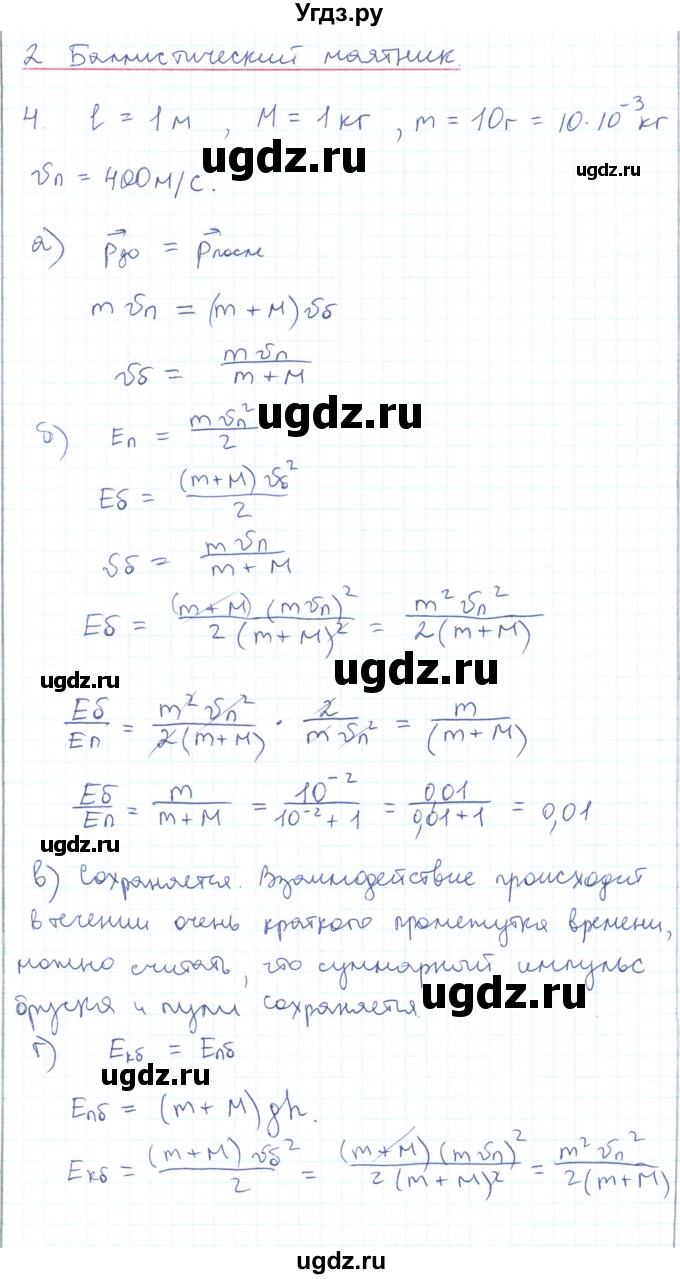 Угдз.ру
2 Баллистический маятник.
4. l = 1 м , M = 1 кг , m = 10г = 10·10⁻³кг
ugdz.ru ugdz.ru
vп = 400м/с.
а) p⃗до = p⃗после
m vп = (m + M) vб
vб = m vп / (m + M)
ugdz.ru
б) Eп = m vп² / 2
Eб = (m+M) vб² / 2
vб = m vп / (m + M)
Eб = (m+M) (m vп)² / 2 (m+M)² = m² vп² / 2(m+M)
ugdz.ru ugdz.ru
Eб/Eп = m² vп² / 2(m+M) · 2 / m vп² = m / (m+M)
Eб/Eп = m / (m+M) = 10⁻² / (10⁻²+1) = 0,01 / (0,01+1) = 0,01
ugdz.ru
в) Сохраняется. Взаимодействие происходит
в течении очень краткого промежутка времени,
можно считать, что суммарный импульс
бруска и пули сохраняется.
ugdz.ru
г) Eкб = Eпб
ugdz.ru
Eпб = (m + M) gh.
Eкб = (m+M) vб² / 2 = (m+M) (m vп)² / 2 (m+M)² = m² vп² / 2(m+M)
ugdz.ru